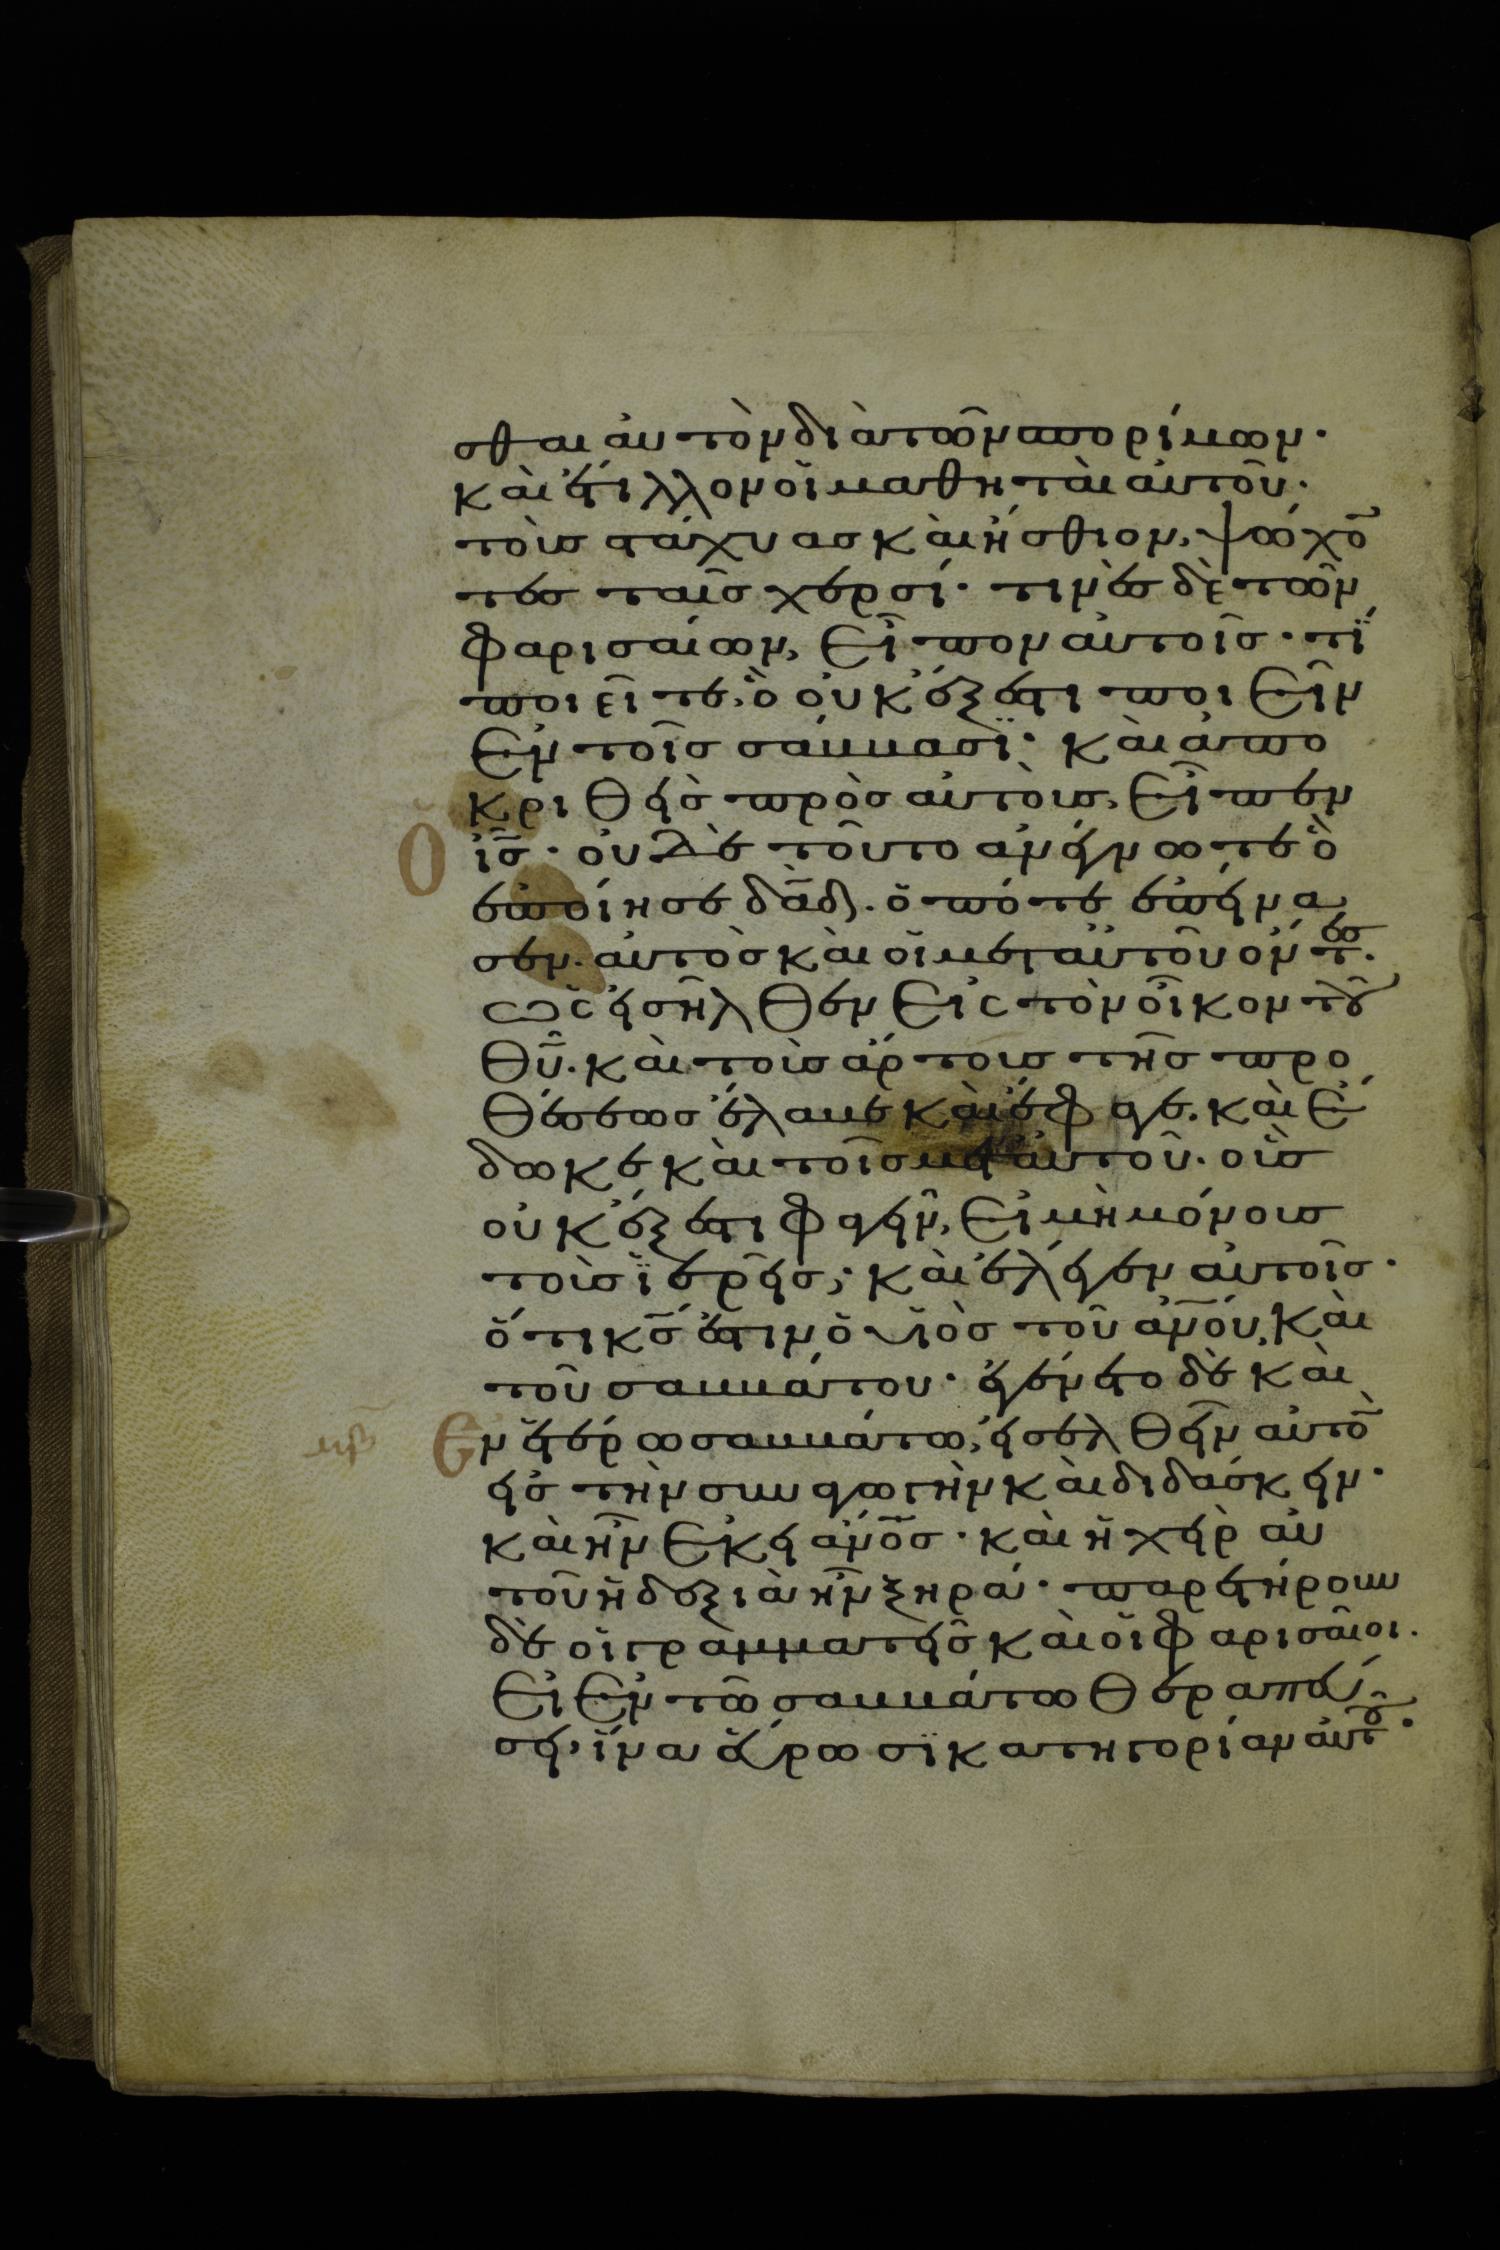 σθαι αὐτὸν διὰ τῶν σπορίμων·
καὶ ἔτιλλον οἱ μαθηταὶ αὐτοῦ·
τοὺς στάχυας καὶ ἤσθιον, ψώχο̅
τες ταῖς χερσί· τινὲς δὲ τῶν
φαρισαίων, εἶπον αὐτοῖς· τί
ποιεῖτε, ὃ οὐκ ἔξεστι ποιεῖν
ἐν τοῖς σάββασϊ· καὶ ἀπο
κριθεὶς πρὸς αὐτοὺς, εἶπεν
Ὁ ι̅ς̅· οὐδὲ τοῦτο ἀνέγνωτε ὃ
ἐποίησε δα̅δ̅· ὁπότε ἐπείνα
σεν· αὐτὸς καὶ οἱ μετ αὐτοῦ ὄντες·
ὡς εἰσῆλθεν εἰς τὸν οἶκον τοῦ
θ̅υ̅· καὶ τοὺς ἄρτους τῆς προ
θέσεως ἔλαβε καὶ ἔφαγε· καὶ ἔ
δωκε καὶ τοῖς μετ αὐτοῦ· οὓς
οὐκ ἔξεστι φαγεῖν, εἰ μὴ μόνους
τοὺς ἱ̈ερεῖς; καὶ ἔλεγεν αὐτοῖς·
ὅτι κ̅ς̅ ἐστιν ὁ υἱὸς τοῦ α̅ν̅ο̅υ̅, καὶ
τοῦ σαββάτου· ἐγένετο δὲ καὶ
μβ Ἐν ἑτέρω σαββάτω, εἰσελθεῖν αὐτὸ̅
εἰς τὴν συναγωγὴν καὶ διδάσκειν·
καὶ ἦν ἐκεῖ α̅ν̅ο̅ς̅· καὶ ἡ χεὶρ αὐ
τοῦ ἡ δεξιὰ ἦν ξηρά· παρετήρουν
δὲ οἱ γραμματεῖς καὶ οἱ φαρισαῖοι·
εἰ ἐν τῶ σαββάτω θεραπεύ
σει· ἵνα εὕρωσϊ κατηγορίαν αὐτοῦ·